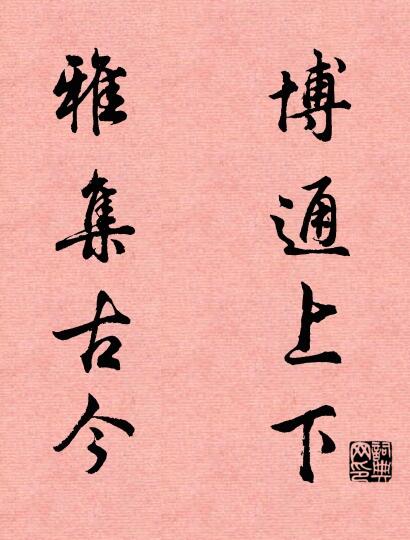 博通上下
雅集古今
詞典
网印